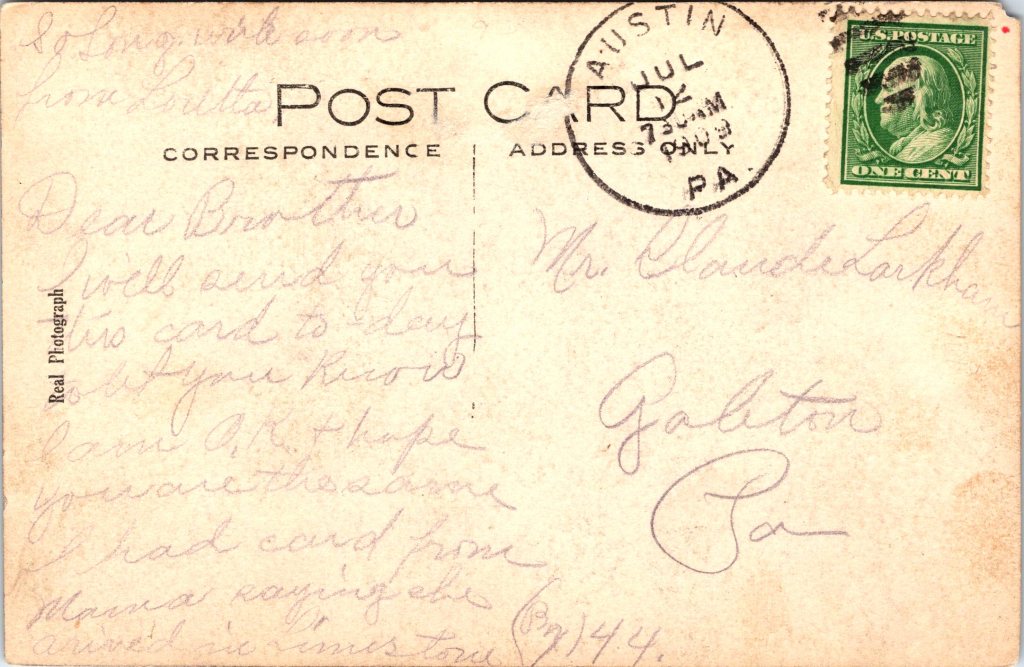 So Long. write soon
from Loretta
POST CARD
CORRESPONDENCE ADDRESS ONLY
AUSTIN
JUL
12
730AM
1909
PA.
U.S. POSTAGE
ONE CENT
Dear Brother
I will send you
this card to-day
to let you Know
I am O.K. + hope
you are the same
I had card from
Mama saying she
arived in Limestone
Real Photograph
Mr. Claude Larkham
Galeton
Pa
(Bx) 44.